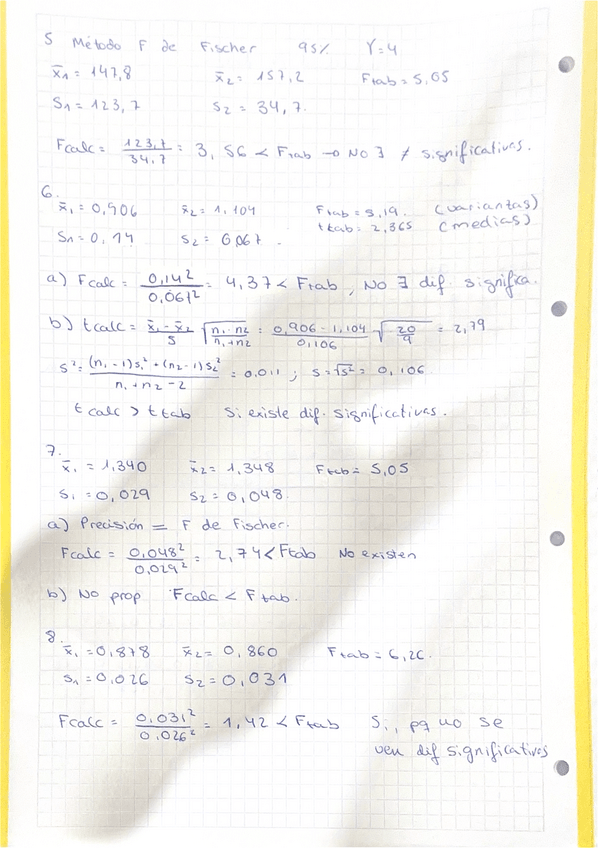 5 Método F de Fischer 95% γ=4
x̄₁= 147,8 x̄₂= 157,2 Ftab = 5,05
S₁= 123,7 S₂= 34,7.
Fcalc = 123,7/34,7 = 3,56 < Ftab → No ∃ ≠ significativas.
6.
x̄₁= 0,906 x̄₂= 1,104 Ftab = 5,19. (variantas)
ttab = 2,365 (medias)
S₁= 0,14 S₂= 0,067.
a) Fcalc = 0,14²/0,067² = 4,37 < Ftab, No ∃ dif significa.
b) tcalc = x̄₁ - x̄₂/S √n₁·n₂/n₁+n₂ = 0,906 - 1,104/0,106 √20/9 = 2,79
S² = (n₁-1)S₁² + (n₂-1)S₂²/n₁+n₂-2 = 0,011 ; S=√S² = 0,106
t calc > t tab Si existe dif. significativas.
7.
x̄₁ = 1,340 x̄₂= 1,348 Ftab = 5,05
S₁ = 0,029 S₂ = 0,048.
a) Precisión = F de Fischer.
Fcalc = 0,048²/0,029² = 2,74 < Ftab No existen
b) No prop Fcalc < F tab.
8.
x̄₁ = 0,878 x̄₂= 0,860 Ftab = 6,26.
S₁ = 0,026 S₂ = 0,031
Fcalc = 0,031²/0,026² = 1,42 < Ftab Si, pq no se
ven dif significativas